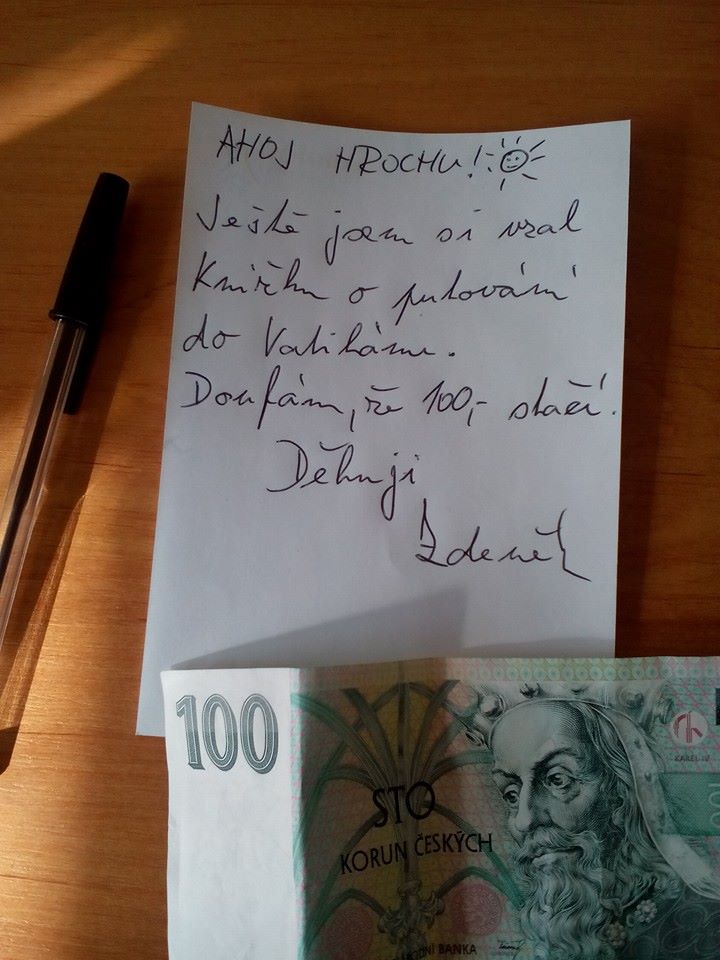 AHOJ HROCHU!
Ještě jsem si vzal
Knížku o putování
do Vatikánu.
Doufám, že 100,- stačí.
Děkuji
Zdeněk
100
STO
KORUN ČESKÝCH
KAREL IV
NÁRODNÍ BANKA